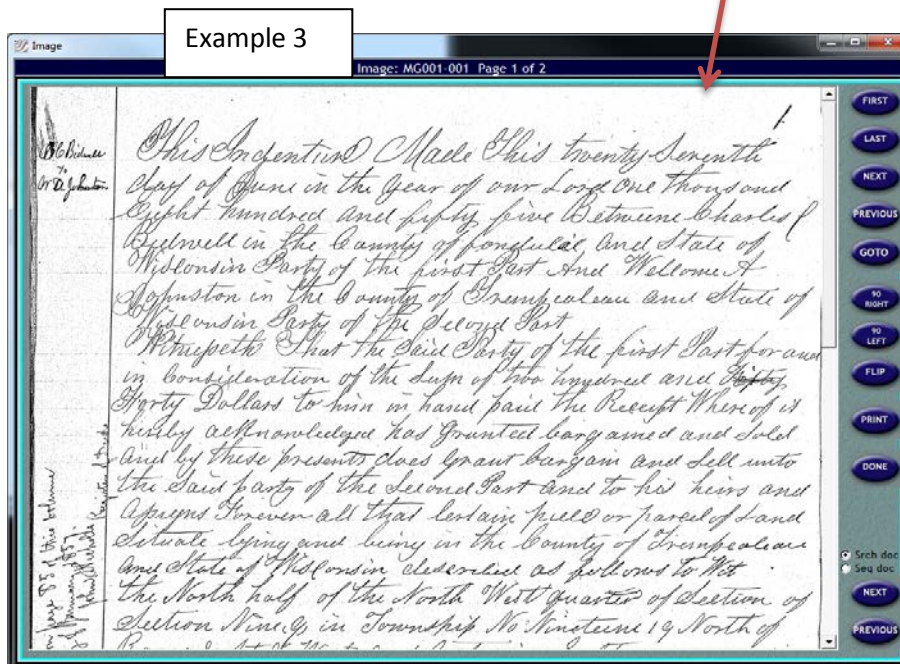 Example 3
Image
Image: MG001-001 Page 1 of 2
1
C C Bidwell
to
W D Johnston
This Indenture Made This twenty Seventh
day of June in the Year of our Lord One thousand
Eight hundred and fifty five Betweene Charles C
Bidwell in the County of fondulac and State of
Wisconsin Party of the first Part And Wellome A
Johnston in the County of Trempealeau and State of
Wisconsin Party of the Second Part
Witnesseth That the Said Party of the first Part for and
in Consideration of the Sum of two hundred and
Forty Dollars to him in hand paid the Receipt Whereof is
hereby acknowledged has Granted bargained and Sold
and by these presents does Grant bargain and Sell unto
the Said party of the Second Part and to his heirs and
assigns Forever all that certain piece or parcel of Land
Situate lying and being in the County of Trempealeau
and State of Wisconsin described as follows to Wit
the North half of the North West quarter of Section of
Section Nine 9 in Township No Nineteene 19 North of
page 85 of this volume
January 1857
FIRST
LAST
NEXT
PREVIOUS
GOTO
90
RIGHT
90
LEFT
FLIP
PRINT
DONE
Srch doc
Seq doc
NEXT
PREVIOUS